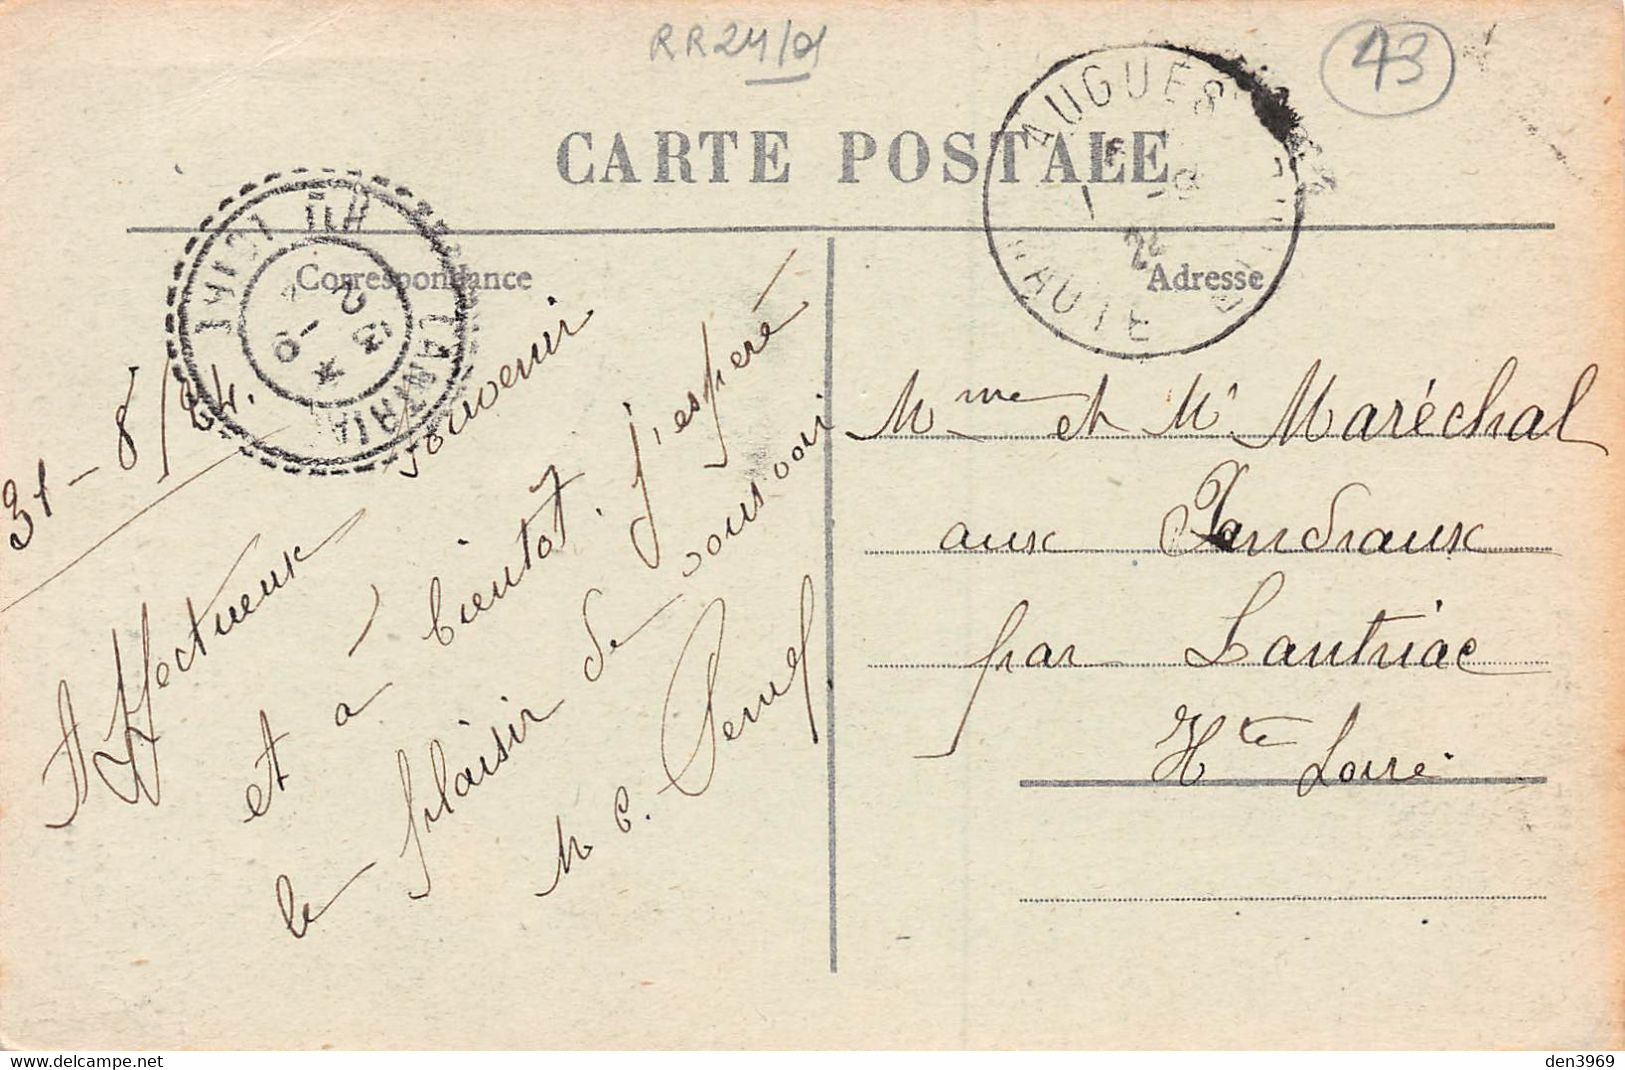 RR24/d
43
CARTE POSTALE
AUGUES
1 -9
24
HAUTE
Correspondance
Adresse
31-8/24.
Affectueux souvenir
et à bientôt. j'espère
le plaisir de vous voir
M C.
LANTRIAC
2 -9
Mme et Mr Maréchal
aux
par Lantriac
Hte Loire.
www.delcampe.net
den3969